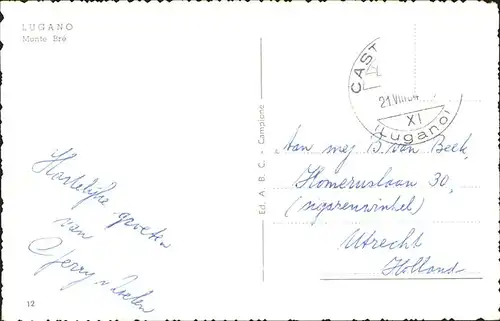 LUGANO
Monte Brè
CAST
21.VIII.
XI
(Lugano)
Ed. A. B. C. - Campione
Aan mej B. van Beek,
Homeruslaan 30,
(sigarenwinkel)
Utrecht
Holland
Hartelijke groeten
van
Gerry
12